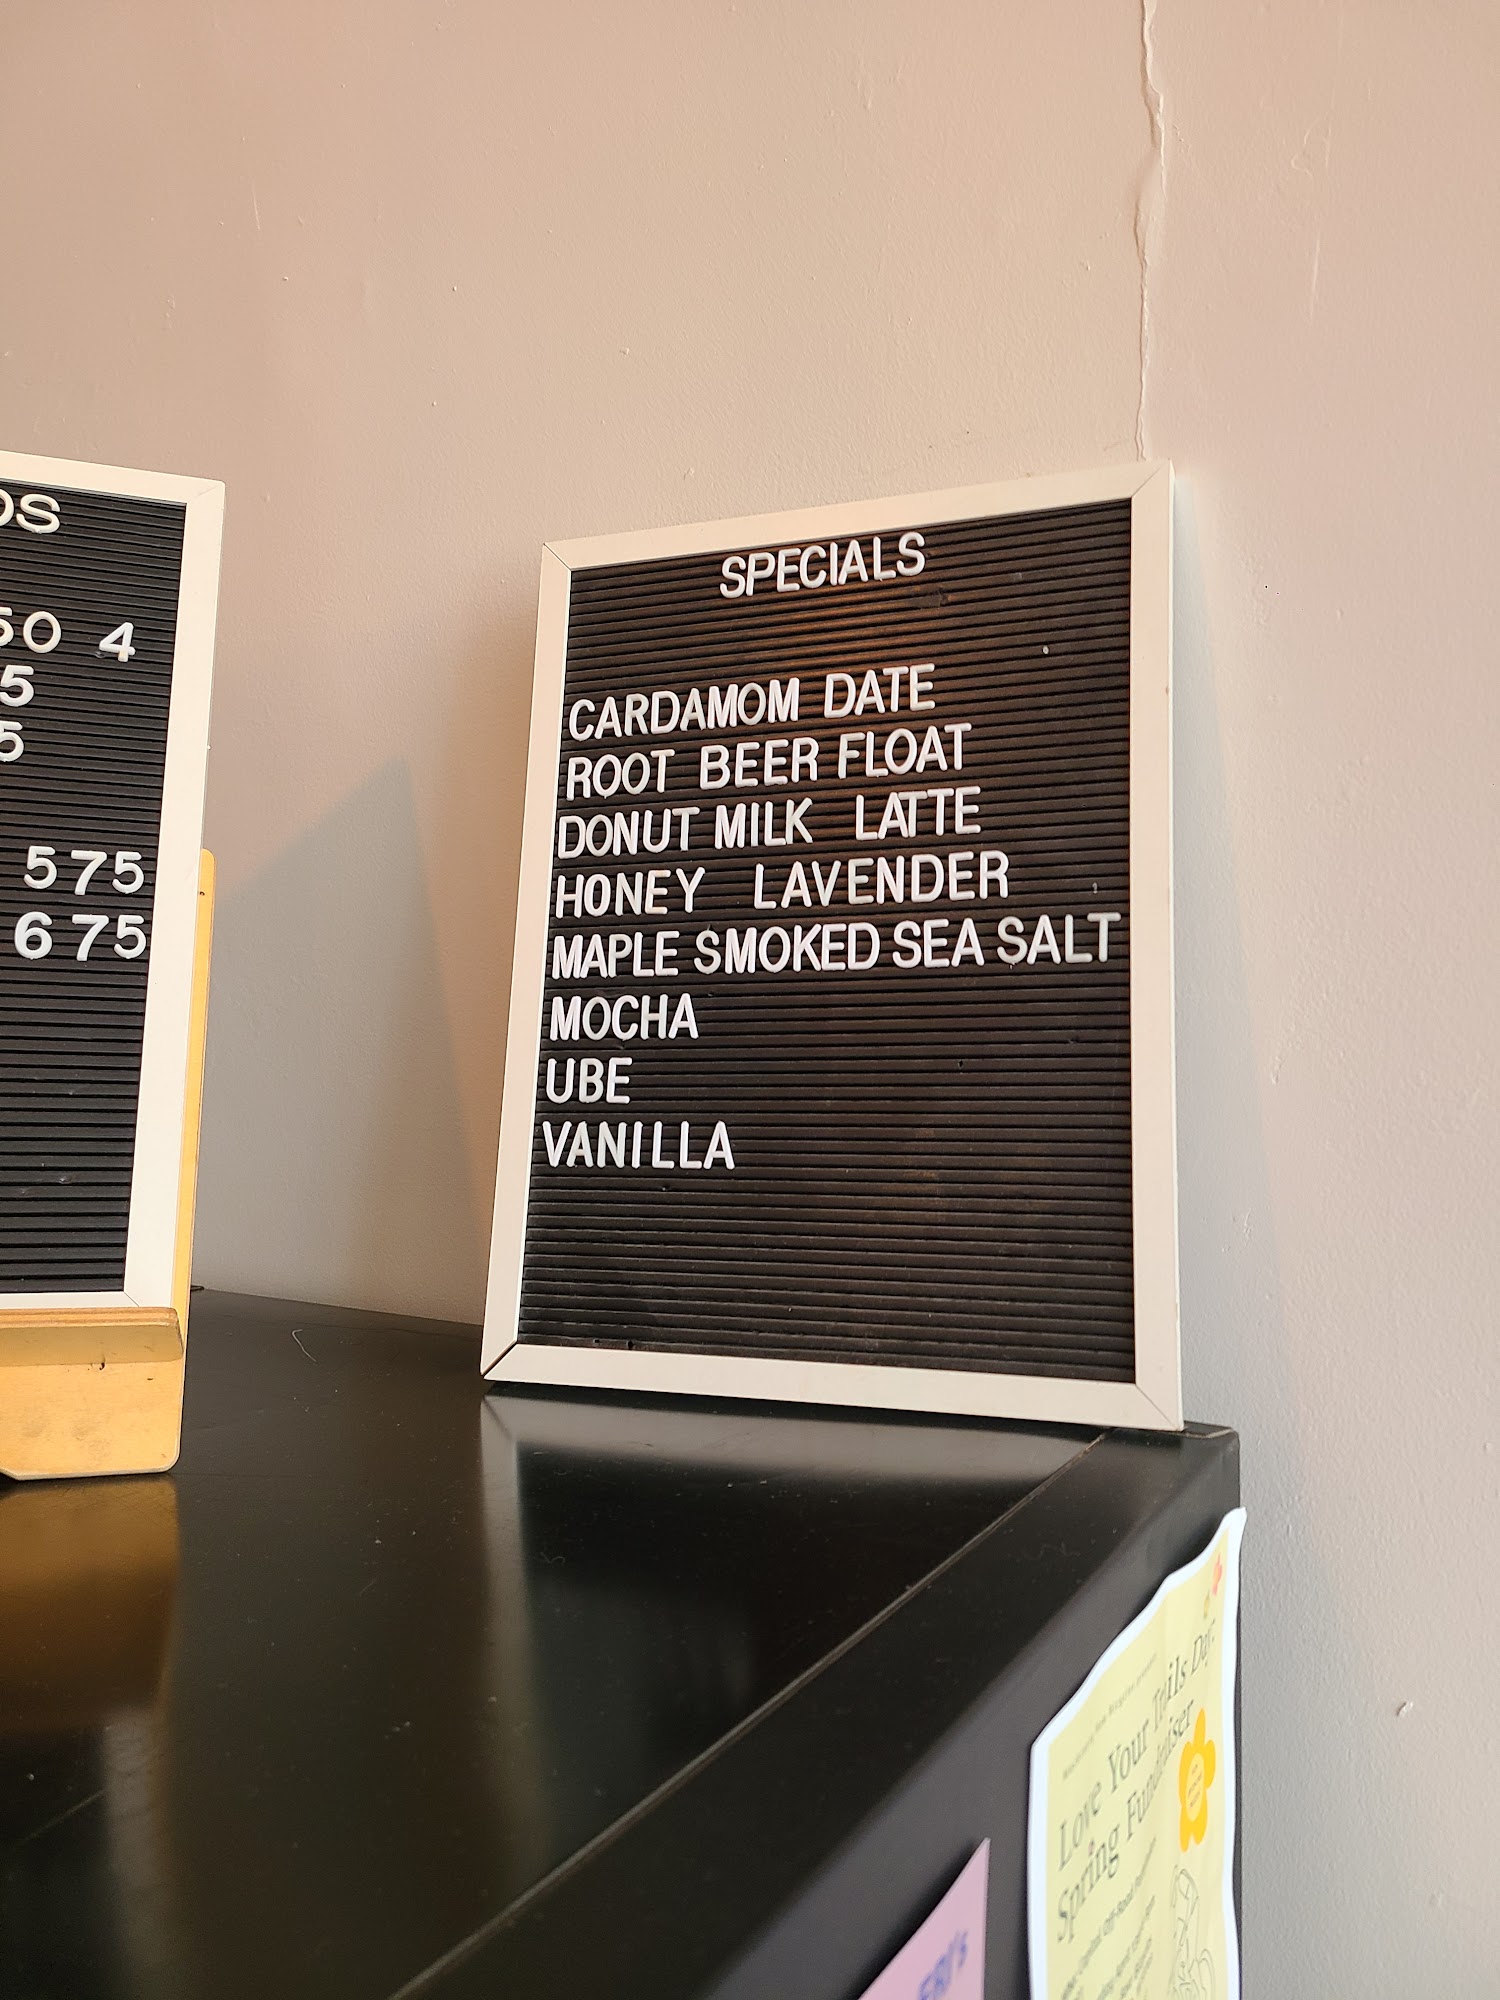 SPECIALS
CARDAMOM DATE
ROOT BEER FLOAT
DONUT MILK LATTE
HONEY LAVENDER
MAPLE SMOKED SEA SALT
MOCHA
UBE
VANILLA
OS
50 4
5
5
575
675
Love Your Trails Day:
Spring Fundraiser